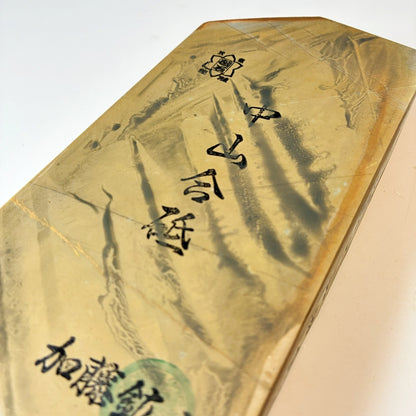 中山合砥
加藤鉱